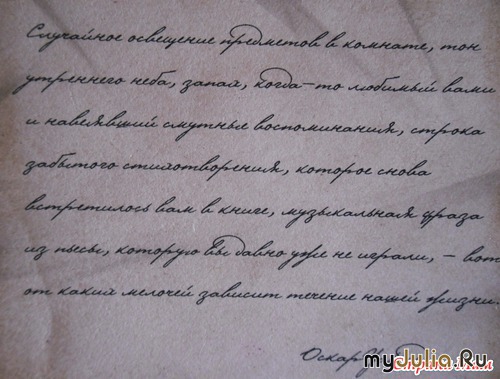 Случайное освещение предметов в комнате, тон
утреннего неба, запах, когда-то любимый вами
и навеявший смутные воспоминания, строка
забытого стихотворения, которое снова
встретилось вам в книге, музыкальная фраза
из пьесы, которую вы давно уже не играли, – вот
от каких мелочей зависит течение нашей жизни.
Оскар
myJulia.Ru